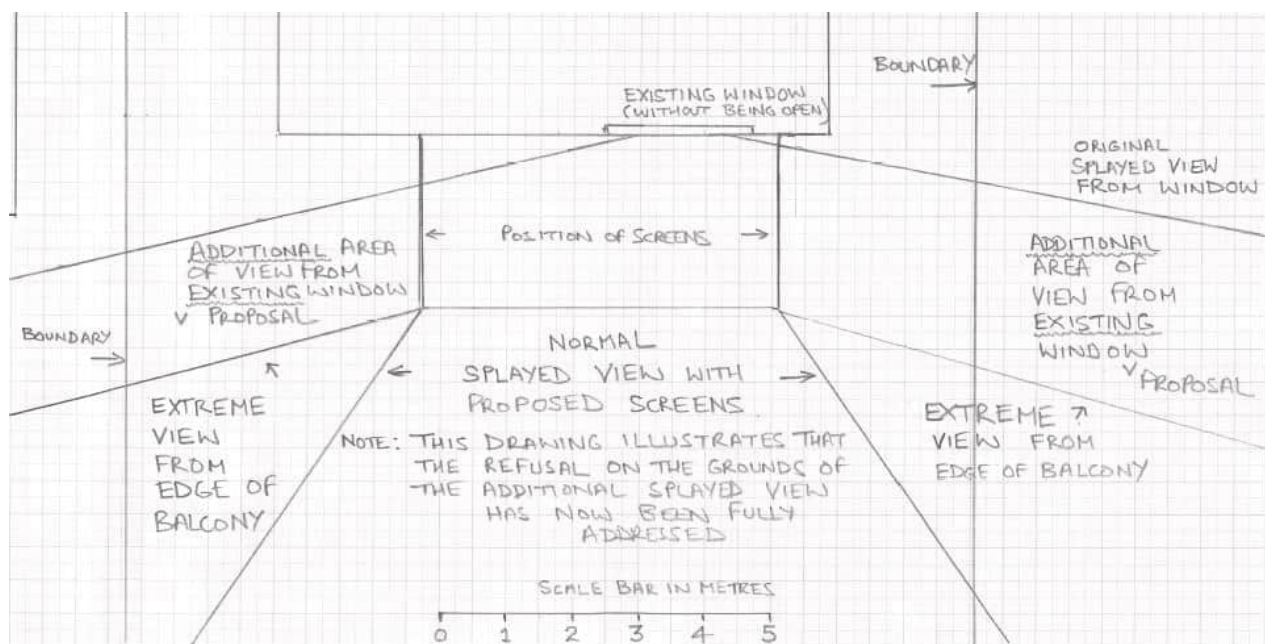 BOUNDARY
EXISTING WINDOW
(WITHOUT BEING OPEN)
ORIGINAL
SPLAYED VIEW
FROM WINDOW
POSITION OF SCREENS
ADDITIONAL AREA
OF VIEW FROM
EXISTING WINDOW
V PROPOSAL
ADDITIONAL
AREA OF
VIEW FROM
EXISTING
WINDOW
V PROPOSAL
BOUNDARY
NORMAL
SPLAYED VIEW WITH
PROPOSED SCREENS.
EXTREME
VIEW
FROM
EDGE OF
BALCONY
EXTREME
VIEW FROM
EDGE OF BALCONY
NOTE: THIS DRAWING ILLUSTRATES THAT
THE REFUSAL ON THE GROUNDS OF
THE ADDITIONAL SPLAYED VIEW
HAS NOW BEEN FULLY
ADDRESSED
SCALE BAR IN METRES
0 1 2 3 4 5